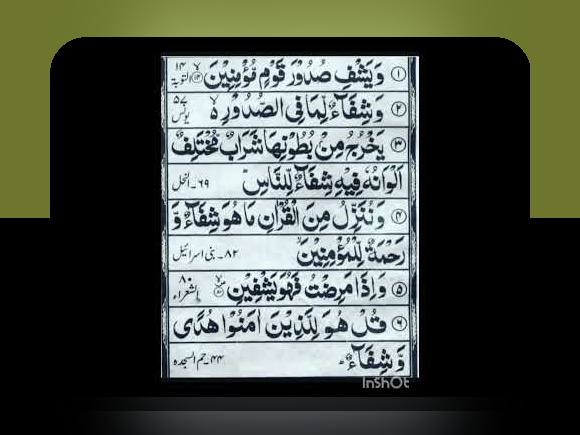 ① وَيَشْفِ صُدُوْرَ قَوْمٍ مُّؤْمِنِيْنَ ۱۴ التوبۃ
② وَشِفَآءٌ لِّمَا فِى الصُّدُوْرِ ۵۷ یونس
③ يَخْرُجُ مِنْ بُطُوْنِهَا شَرَابٌ مُّخْتَلِفٌ
اَلْوَانُهٗ فِيْهِ شِفَآءٌ لِّلنَّاسِ ۶۹۔النحل
④ وَنُنَزِّلُ مِنَ الْقُرْاٰنِ مَا هُوَ شِفَآءٌ وَّ
رَحْمَةٌ لِّلْمُؤْمِنِيْنَ ۸۲۔بنی اسرائیل
⑤ وَاِذَا مَرِضْتُ فَهُوَ يَشْفِيْنِ ۸۰ الشعراء
⑥ قُلْ هُوَ لِلَّذِيْنَ اٰمَنُوْا هُدًى
وَّشِفَآءٌ ۴۴۔حٰم السجدہ
InShOt